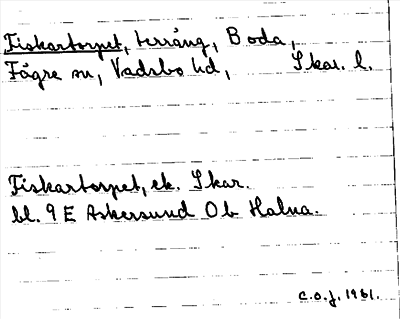 Fiskartorpet, terräng, Boda,
Fägre sn, Vadsbo hd, Skar. l.
Fiskartorpet, ek. Skar.
bl. 9 E Askersund Ob Halna.
C.O.J. 1961.